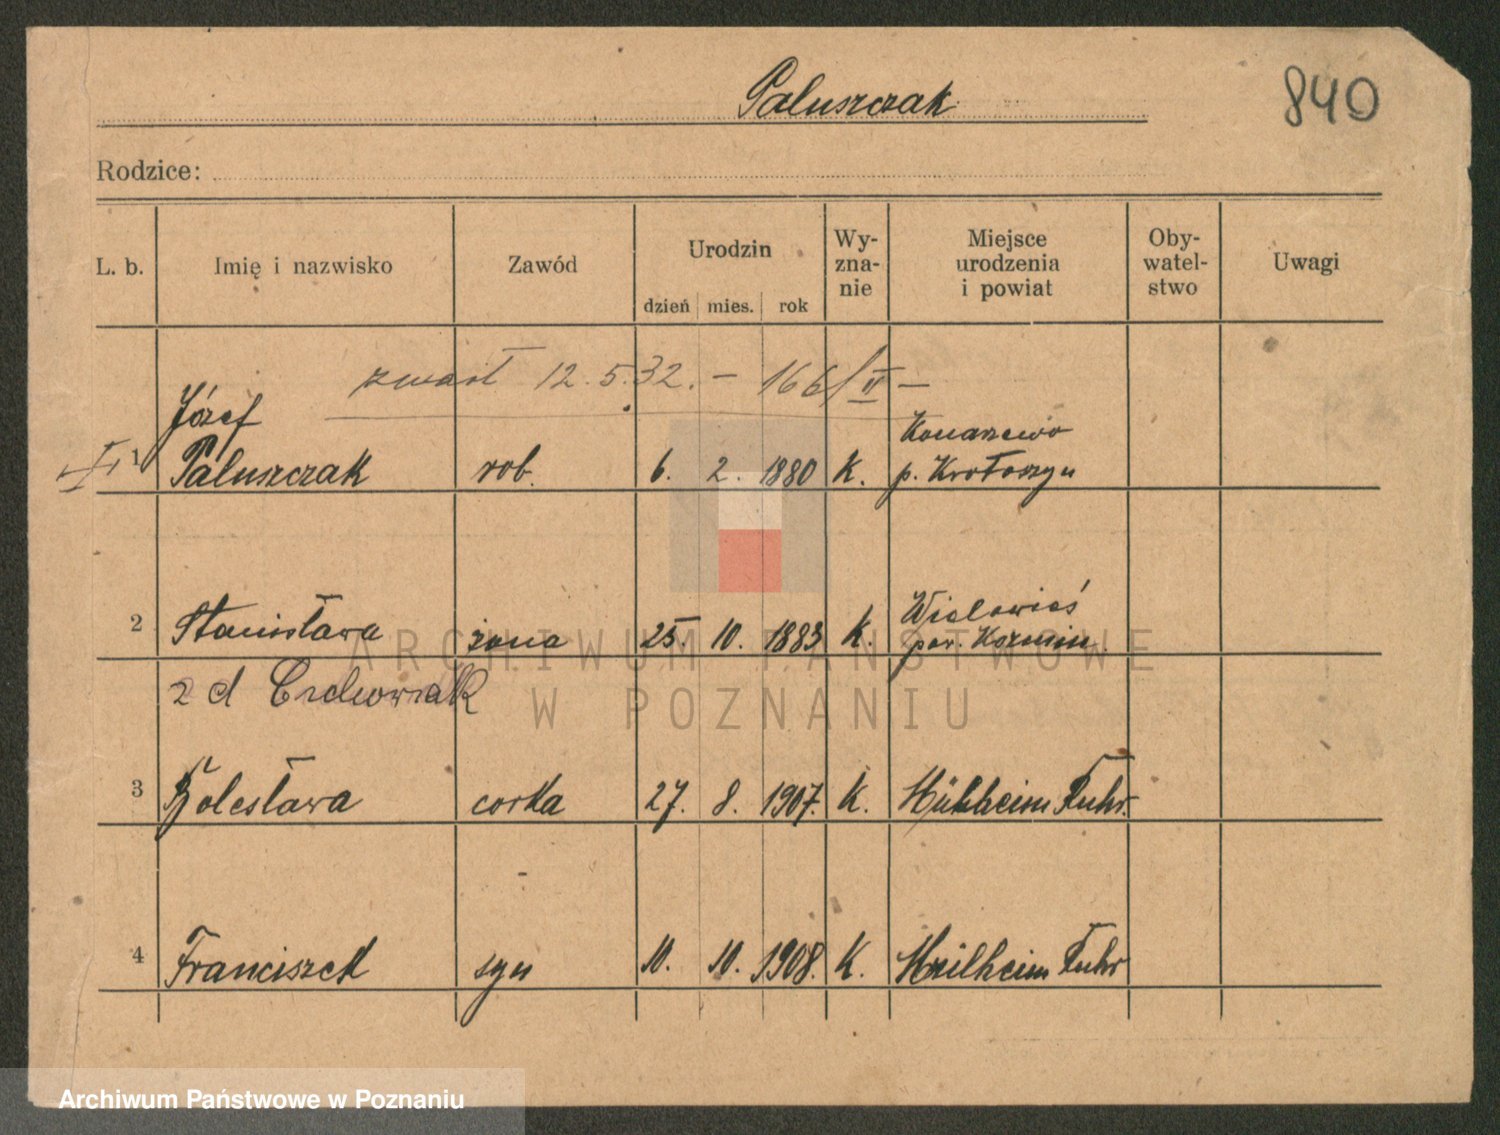 Paluszczak
840
Rodzice:
L. b. Imię i nazwisko Zawód Urodzin dzień mies. rok Wy-zna-nie Miejsce urodzenia i powiat Oby-watel-stwo Uwagi
zmarł 12.5.32. — 166/II —
Józef Konarzewo
1 Paluszczak rob. 6. 2. 1880 K. p. Krotoszyn
Wielowieś
2 Stanisława żona 25. 10. 1883 K. pow. Koźmin.
2 d
3 Bolesława corka 27. 8. 1907. K. Mühlheim Ruhr.
4 Franciszek syn 10. 10. 1908. K. Mülheim Ruhr
ARCHIWUM PAŃSTWOWE
W POZNANIU
Archiwum Państwowe w Poznaniu